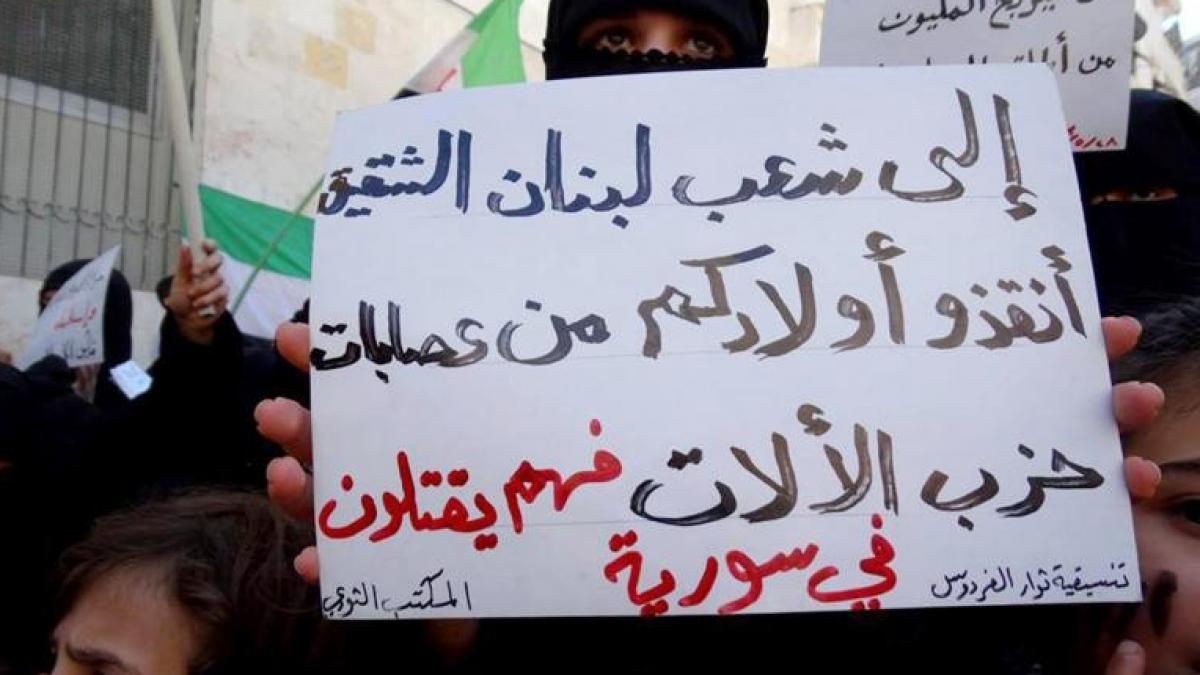 إلى شعب لبنان الشقيق
أنقذو أولادكم من عصابات
حزب الألات فهم يقتلون
في سورية
تنسيقية ثوار الفردوس
المكتب الثوري
المليون
من